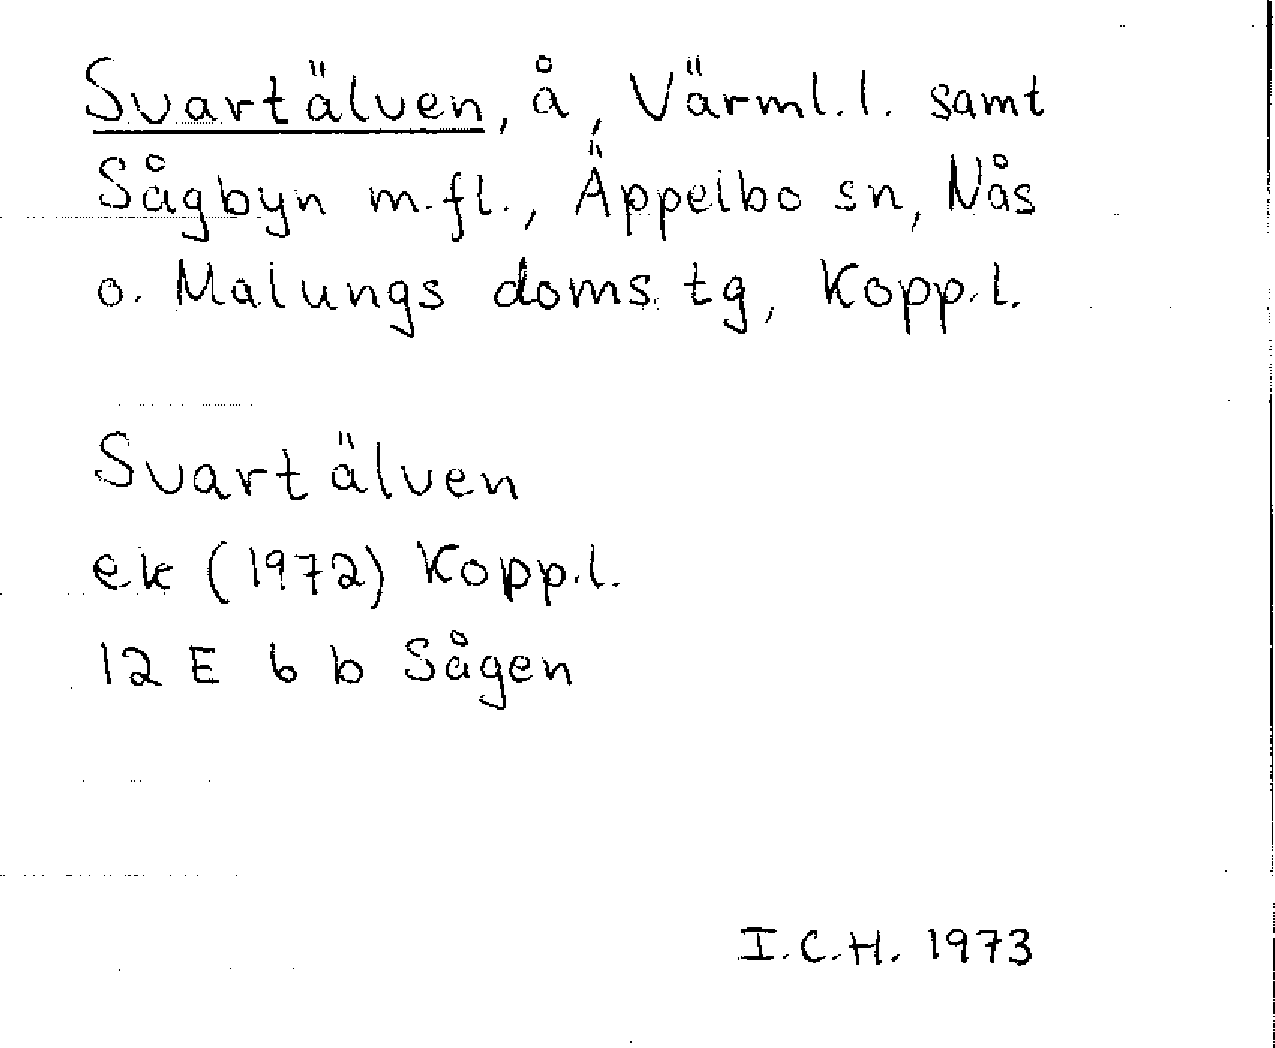 Svartälven, å, Värml.l. samt
Sågbyn m.fl., Äppelbo sn, Nås
o. Malungs doms.tg, Kopp.l.
Svartälven
ek (1972) Kopp.l.
12 E 6 b Sågen
I.C.H. 1973